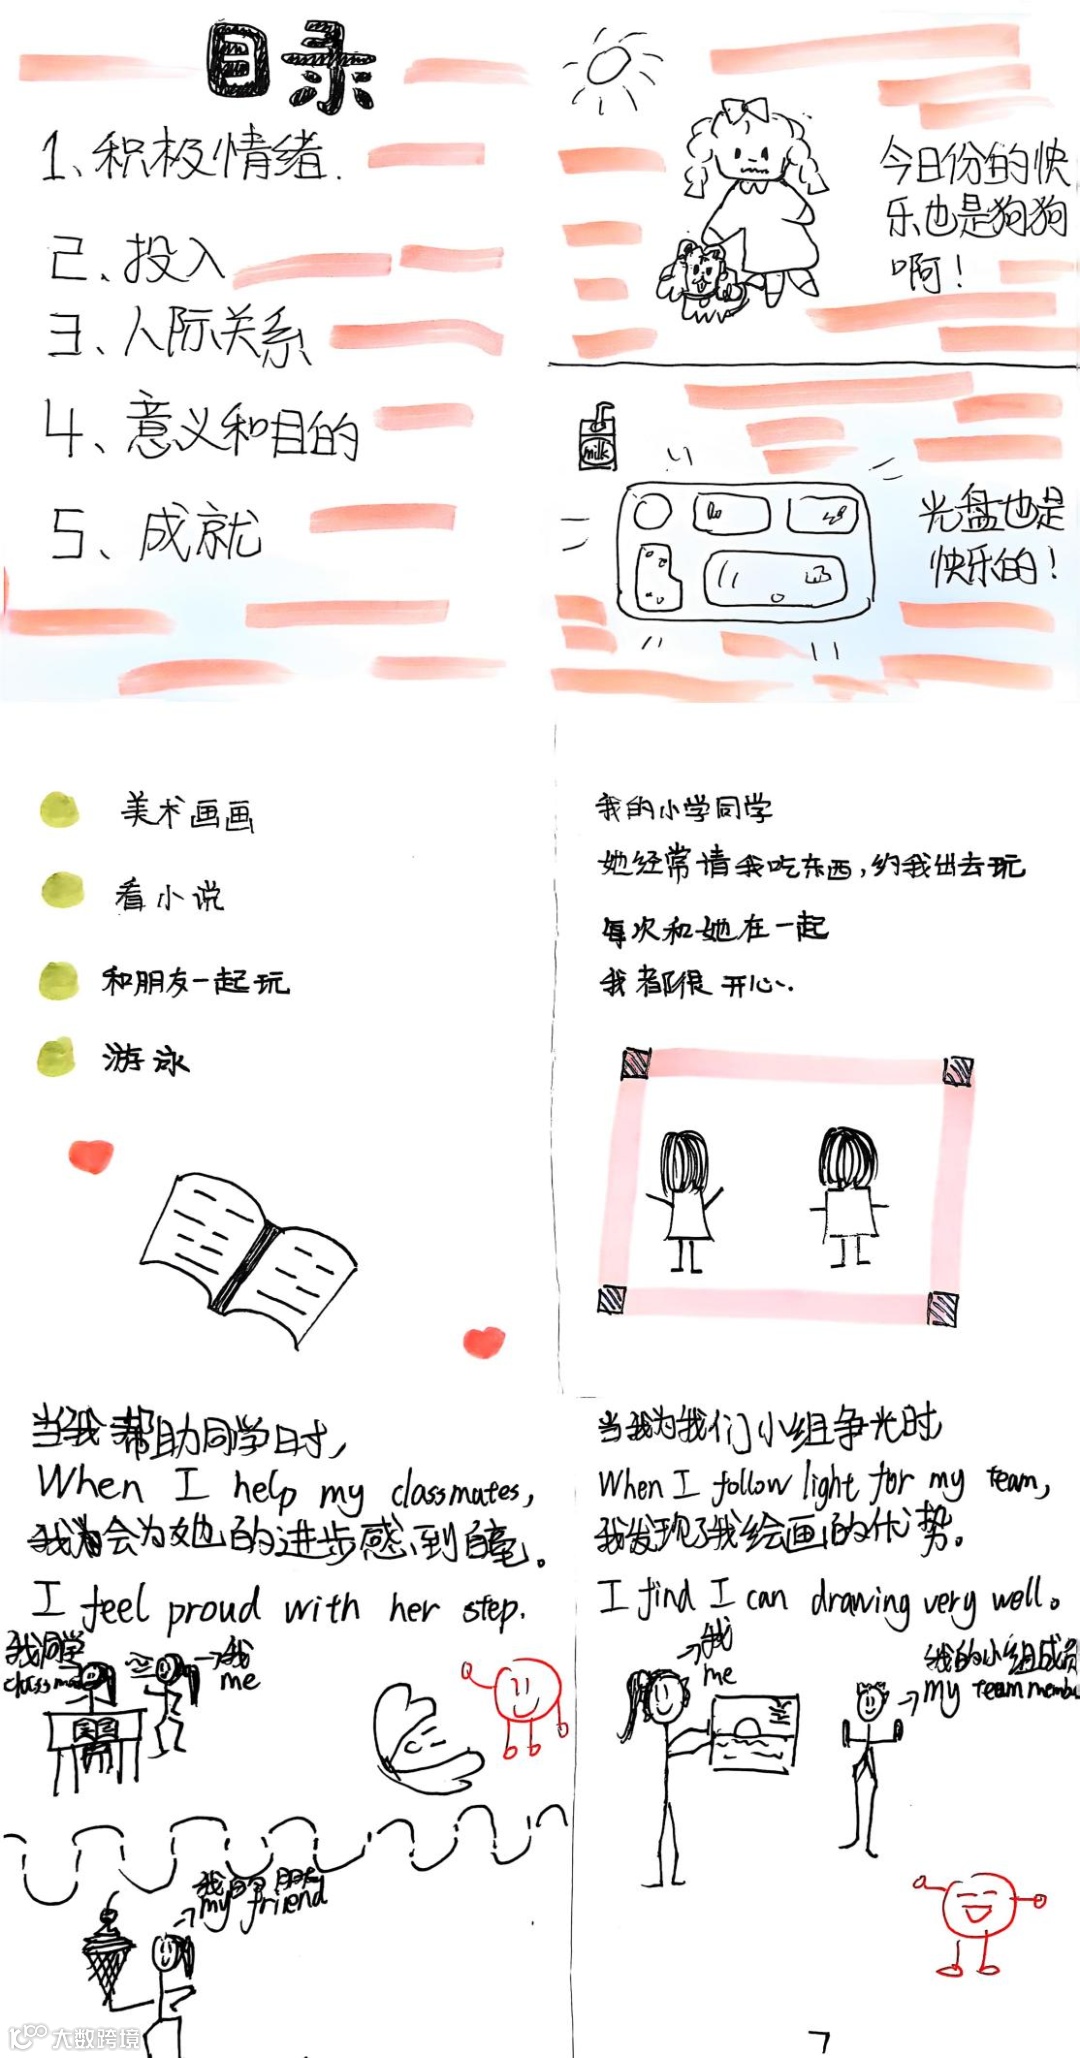 目录
1、积极情绪.
2、投入
3、人际关系
4、意义和目的
5、成就
今日份的快
乐也是狗狗
啊！
milk
光盘也是
快乐的！
美术画画
看小说
和朋友一起玩
游泳
我的小学同学
她经常请我吃东西,约我出去玩
每次和她在一起
我都很开心.
当我帮助同学时,
When I help my classmates,
我会为她的进步感到自豪。
I feel proud with her step.
我同学
classma
我
me
我的朋友
my friend
当我为我们小组争光时
When I follow light for my team,
我发现了我绘画的优势。
I find I can drawing very well。
我
me
我的小组成员
my team membe
7
大数跨境